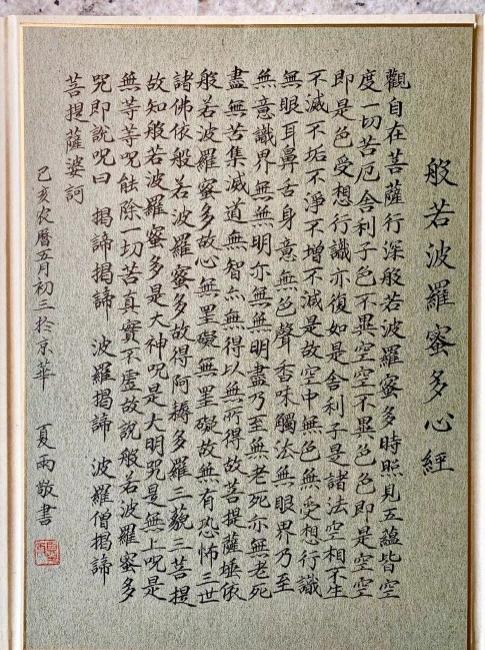 般若波羅蜜多心經
觀自在菩薩行深般若波羅蜜多時照見五蘊皆空
度一切苦厄舍利子色不異空空不異色色即是空空
即是色受想行識亦復如是舍利子是諸法空相不生
不滅不垢不淨不增不減是故空中無色無受想行識
無眼耳鼻舌身意無色聲香味觸法無眼界乃至
無意識界無無明亦無無明盡乃至無老死亦無老死
盡無苦集滅道無智亦無得以無所得故菩提薩埵依
般若波羅蜜多故心無罣礙無罣礙故無有恐怖三世
諸佛依般若波羅蜜多故得阿耨多羅三藐三菩提
故知般若波羅蜜多是大神呪是大明呪是無上呪是
無等等呪能除一切苦真實不虛故說般若波羅蜜多
呪即說呪曰 揭諦揭諦 波羅揭諦 波羅僧揭諦
菩提薩婆訶
己亥农曆五月初三於京華 夏雨敬書